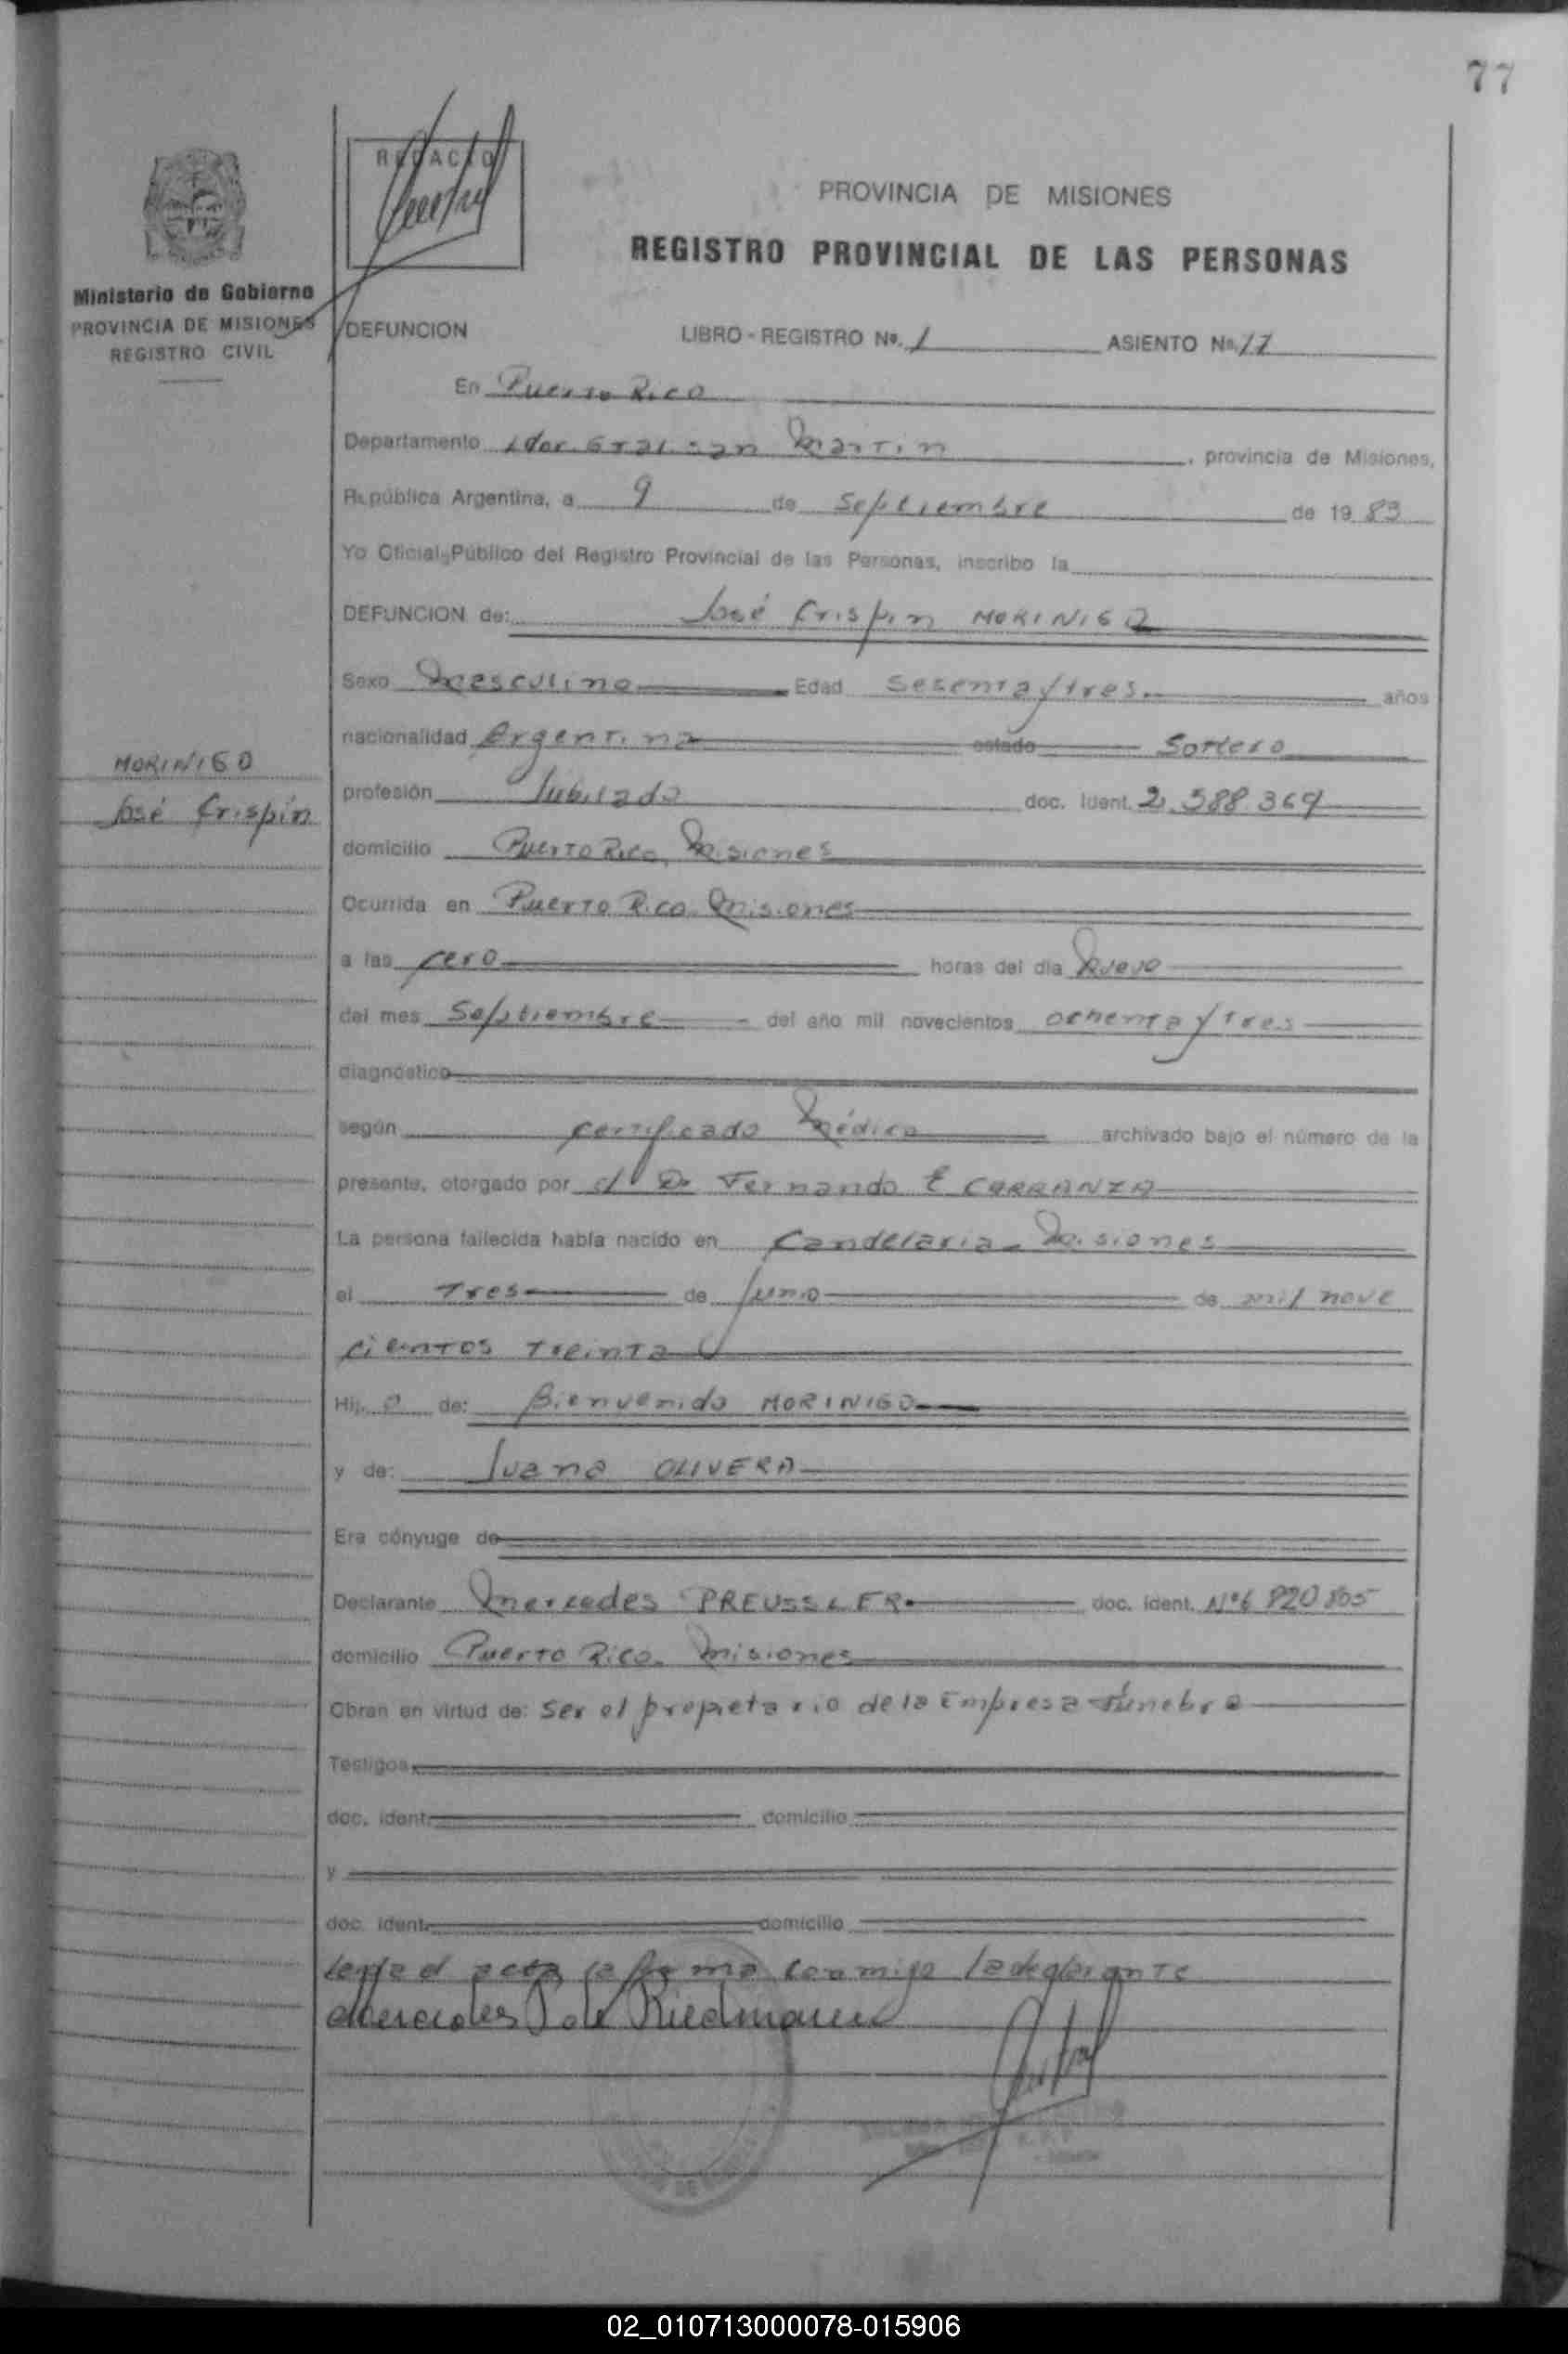 77
REDACTO
PROVINCIA DE MISIONES
REGISTRO PROVINCIAL DE LAS PERSONAS
Ministerio de Gobierno
PROVINCIA DE MISIONES
REGISTRO CIVIL
DEFUNCION LIBRO - REGISTRO Nº. 1 ASIENTO Nº. 77
En Puerto Rico
Departamento Ldor. Gral. San Martin, provincia de Misiones,
República Argentina, a 9 de Septiembre de 19 83
Yo Oficial Público del Registro Provincial de las Personas, inscribo la
DEFUNCION de: José Crispin MORINIGO
Sexo Masculino Edad Sesenta y tres años
nacionalidad Argentina estado Soltero
MORINIGO
José Crispín
profesión Jubilado doc. ident. 2.588.369
domicilio Puerto Rico, Misiones
Ocurrida en Puerto Rico Misiones
a las cero horas del día Nueve
del mes Septiembre del año mil novecientos ochenta y tres
diagnóstico
según certificado Médico archivado bajo el número de la
presente, otorgado por el Dr Fernando E CARRANZA
La persona fallecida había nacido en Candelaria - Misiones
el Tres de Junio de mil nove
cientos Treinta
Hij o de: Bienvenido MORINIGO
y de: Juana OLIVERA
Era cónyuge de
Declarante Mercedes PREUSSLER doc. ident. Nº 6 820 805
domicilio Puerto Rico. Misiones
Obran en virtud de: Ser el propietario de la Empresa Fúnebre
Testigos
doc. ident. domicilio
y
doc. ident. domicilio
Leida el acta la firma conmigo la declarante
Mercedes P de Riedmann
02_010713000078-015906